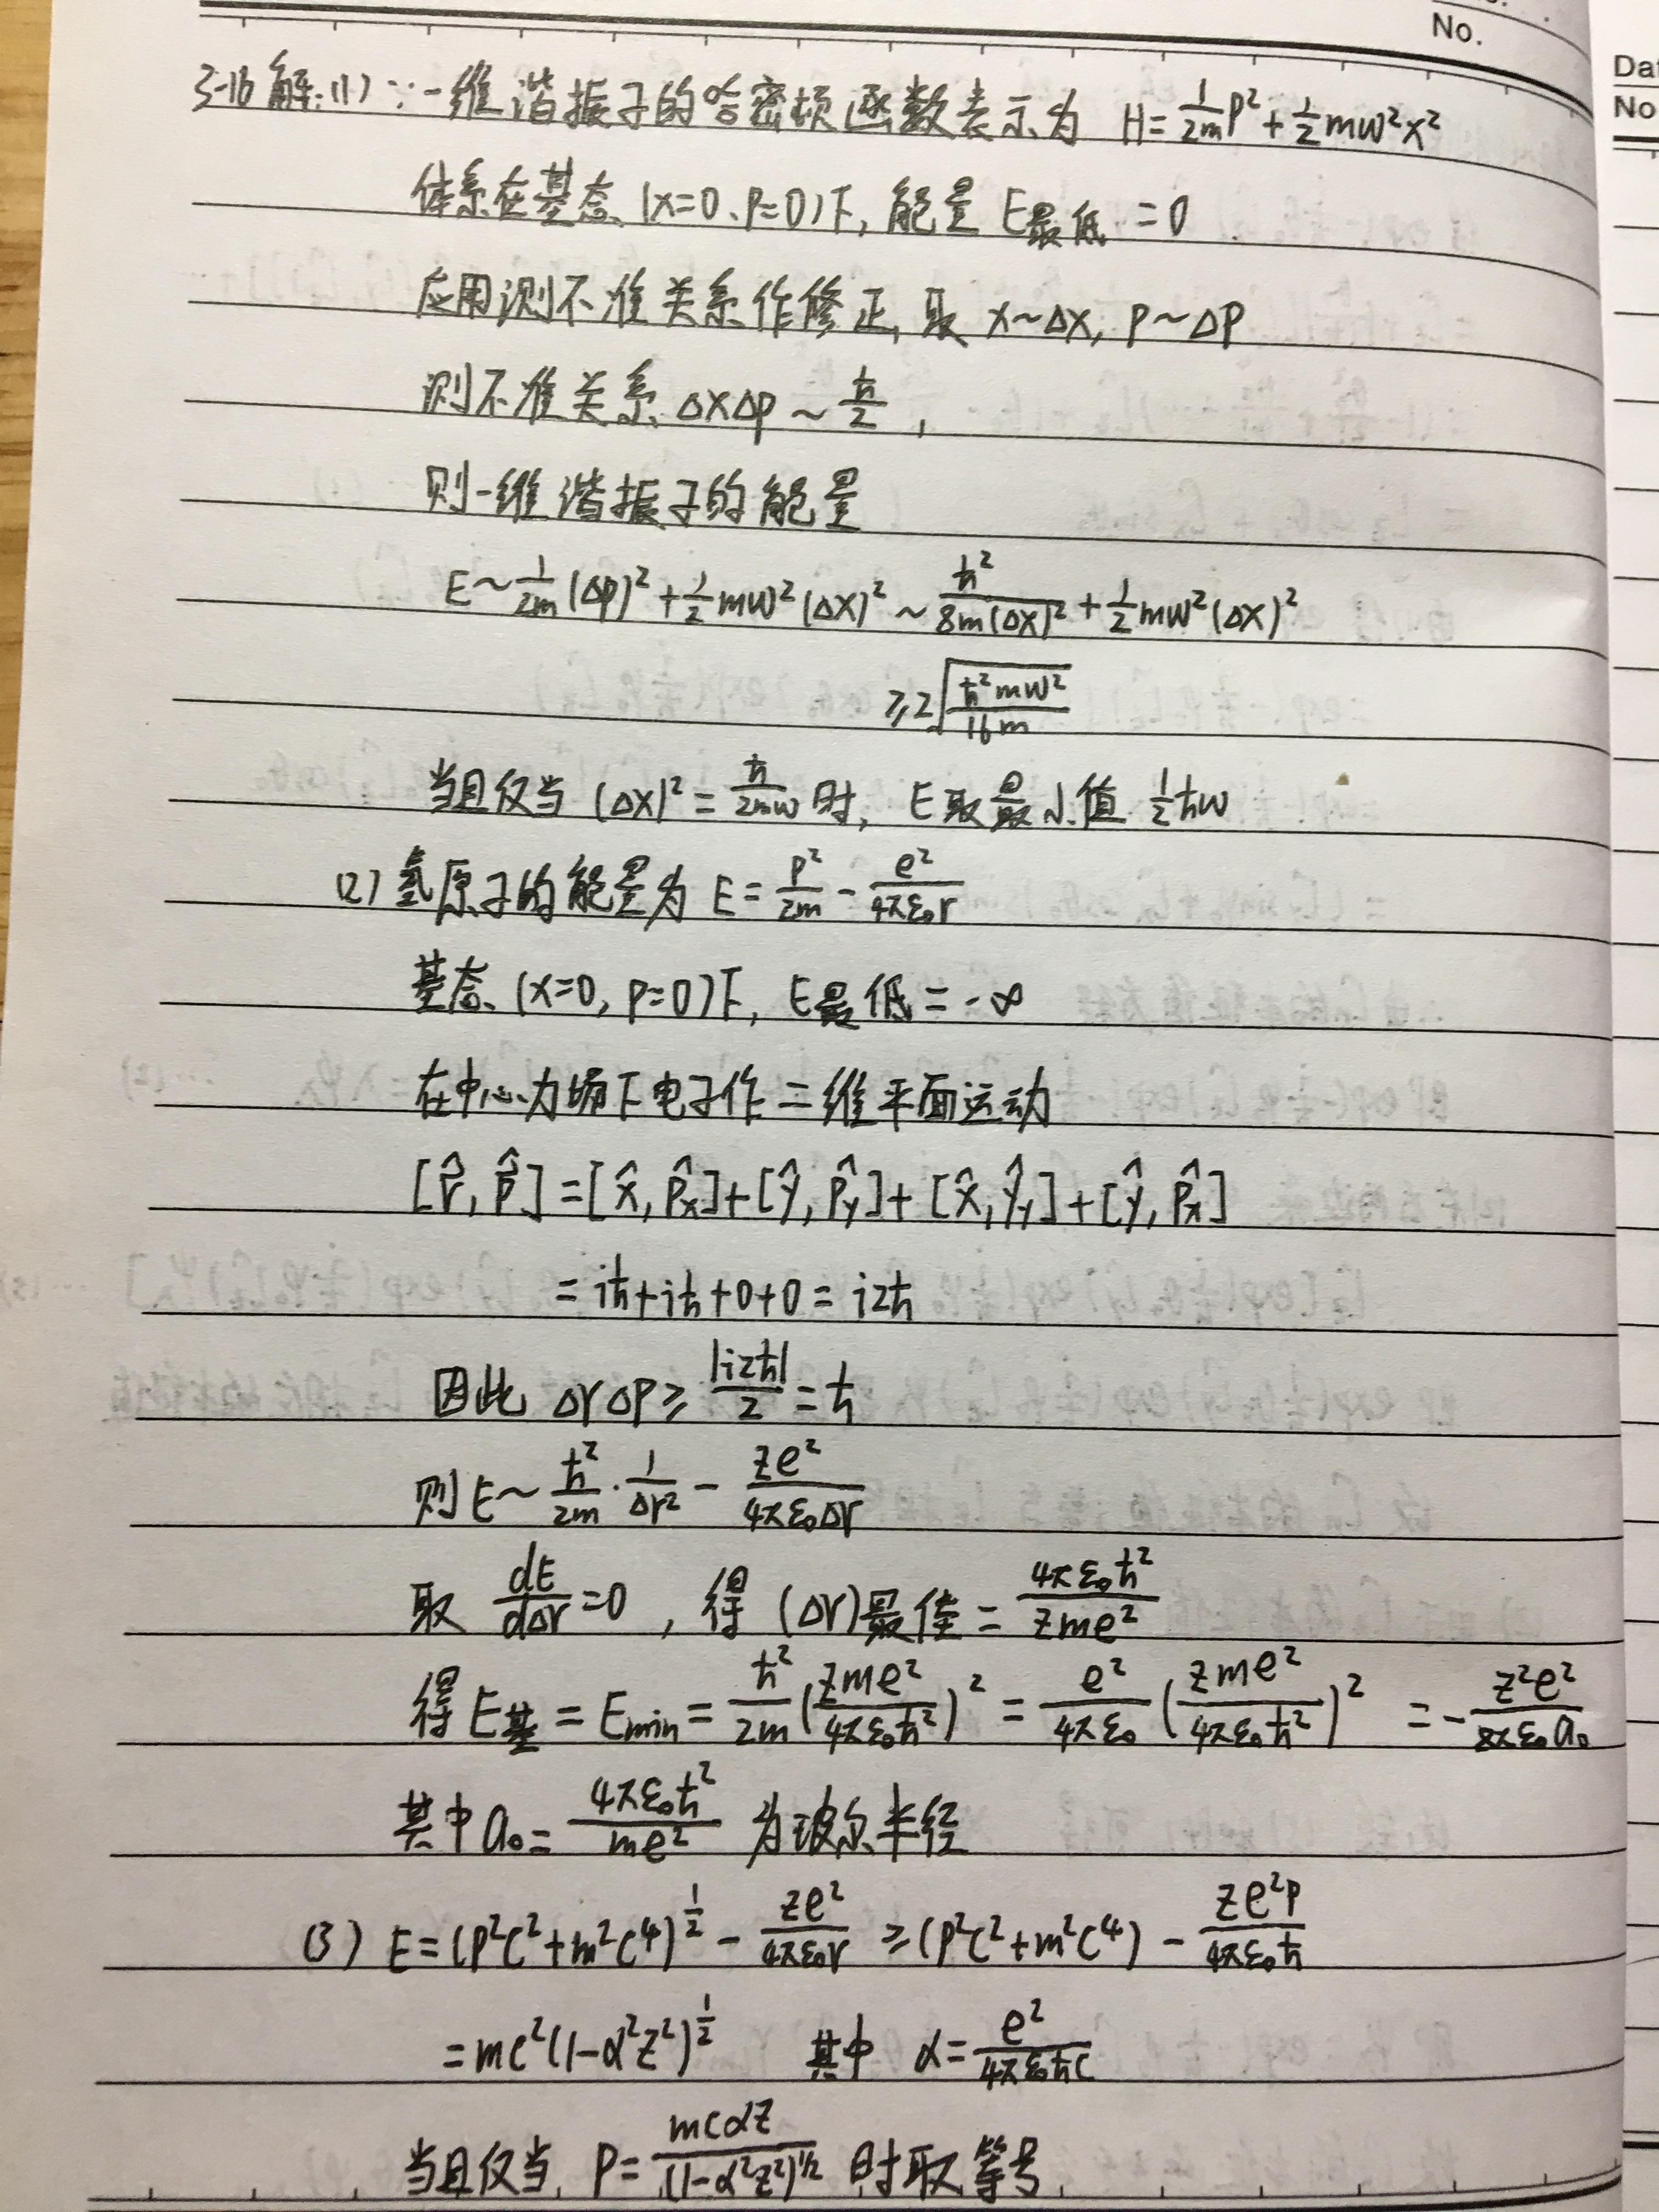 No.
Dat
No
3-16 解:(1) ∵一维谐振子的哈密顿函数表示为 H=\frac{1}{2m}P²+\frac{1}{2}mω²x²
体系在基态(x=0、P=0)下,能量E最低=0
应用测不准关系作修正,取 x~Δx, P~ΔP
测不准关系 ΔxΔp~\frac{ħ}{2},
则一维谐振子的能量
E~\frac{1}{2m}(Δp)²+\frac{1}{2}mω²(Δx)²~\frac{ħ²}{8m(Δx)²}+\frac{1}{2}mω²(Δx)²
≥2\sqrt{\frac{ħ²mω²}{16m}}
当且仅当 (Δx)²=\frac{ħ}{2mω}时, E取最小值 \frac{1}{2}ħω
(2) 氢原子的能量为 E=\frac{P²}{2m}-\frac{e²}{4πε₀r}
基态(x=0, P=0)下, E最低=-∞
在中心力场下电子作二维平面运动
[r̂, p̂]=[x̂, p̂x]+[ŷ, p̂y]+[x̂, ŷy]+[ŷ, p̂x]
=iħ+iħ+0+0=i2ħ
因此 ΔrΔP≥\frac{|i2ħ|}{2}=ħ
则E~\frac{ħ²}{2m}·\frac{1}{Δr²}-\frac{Ze²}{4πε₀Δr}
取 \frac{dE}{dΔr}=0, 得 (Δr)最佳=\frac{4πε₀ħ²}{Zme²}
得E基=Emin=\frac{ħ²}{2m}(\frac{Zme²}{4πε₀ħ²})²=\frac{e²}{4πε₀}(\frac{Zme²}{4πε₀ħ²})²=-\frac{Z²e²}{8πε₀a₀}
其中a₀=\frac{4πε₀ħ²}{me²} 为玻尔半径
(3) E=(P²C²+m²C⁴)^{\frac{1}{2}}-\frac{Ze²}{4πε₀r}≥(P²C²+m²C⁴)-\frac{Ze²P}{4πε₀ħ}
=mc²(1-α²Z²)^{\frac{1}{2}} 其中 α=\frac{e²}{4πε₀ħC}
当且仅当 P=\frac{mcαZ}{(1-α²Z²)^{1/2}} 时取等号